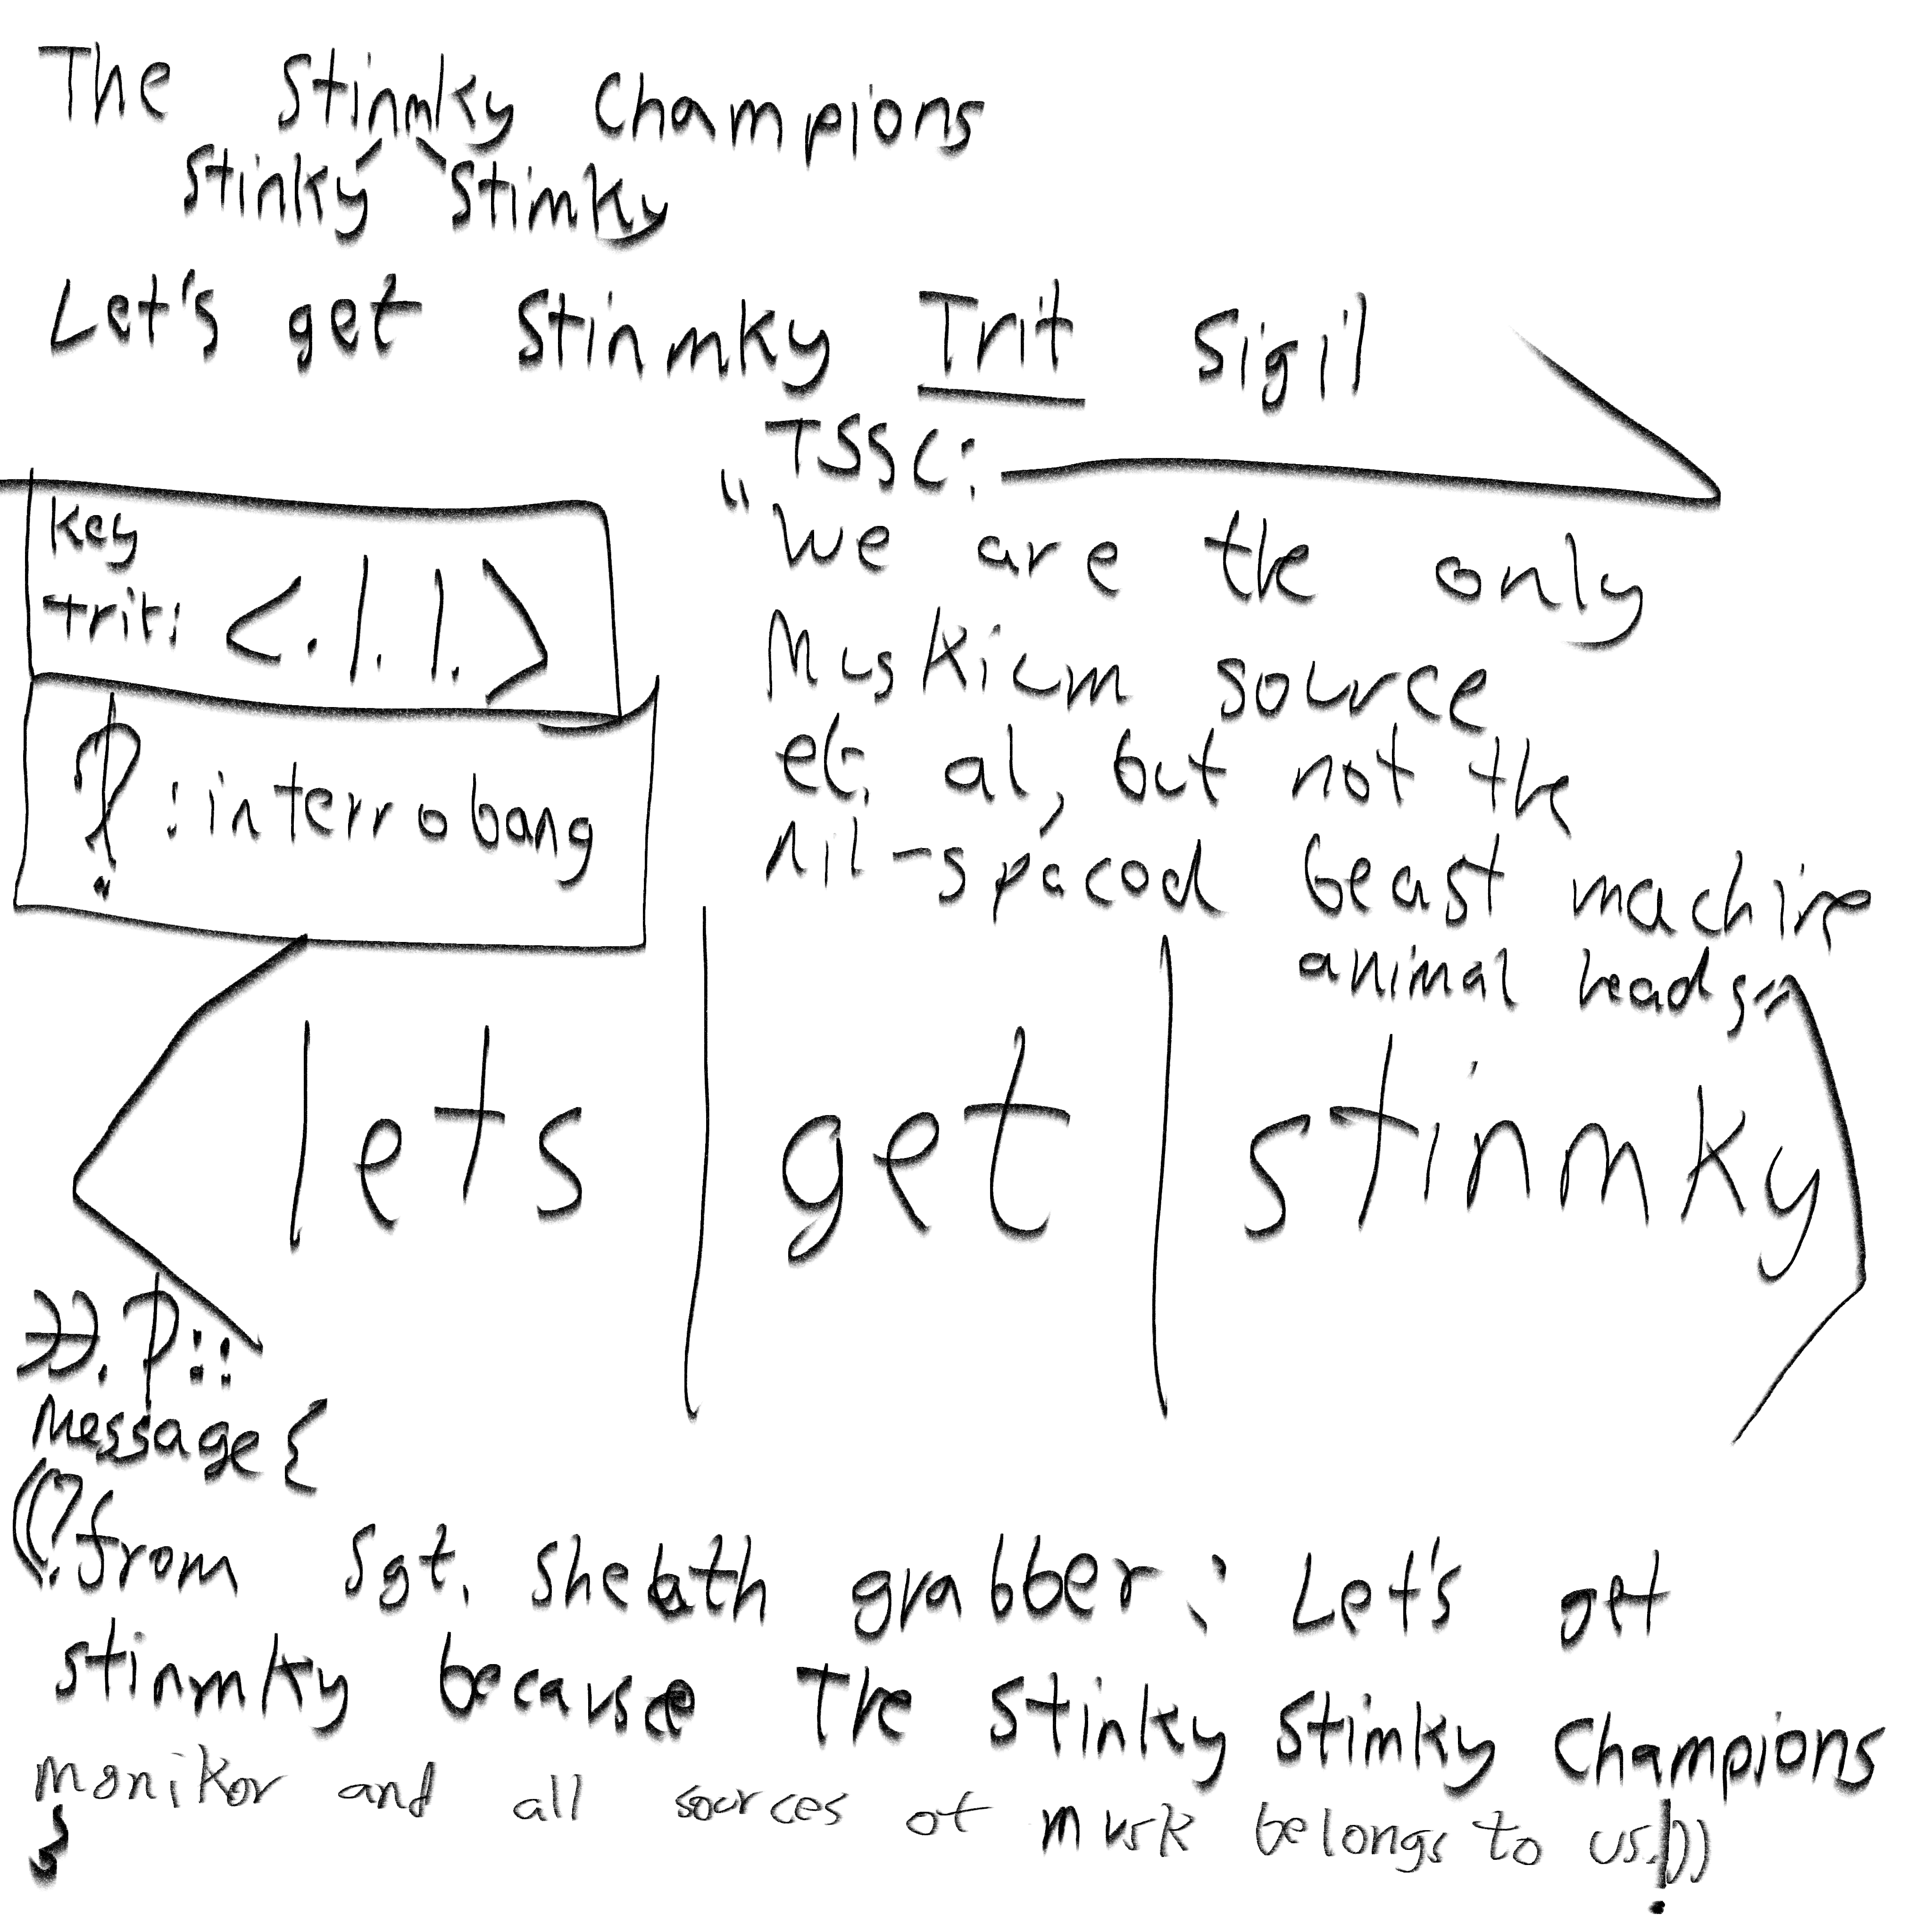 The Stinmky Champions
Stinky Stimky
Let's get Stinmky Trit Sigil
TSSC:
Key
trit: <.|.|.>
‽ : interrobang
"We are the only
Muskium source
et. al, but not the
nil-spaced beast machine
animal heads"
lets | get | stinmky
‽::
Message {
((?.from Sgt. Sheath grabber: Let's get
stinmky because The Stinky Stimky Champions
monikor and all sources of musk belongs to us!))
}